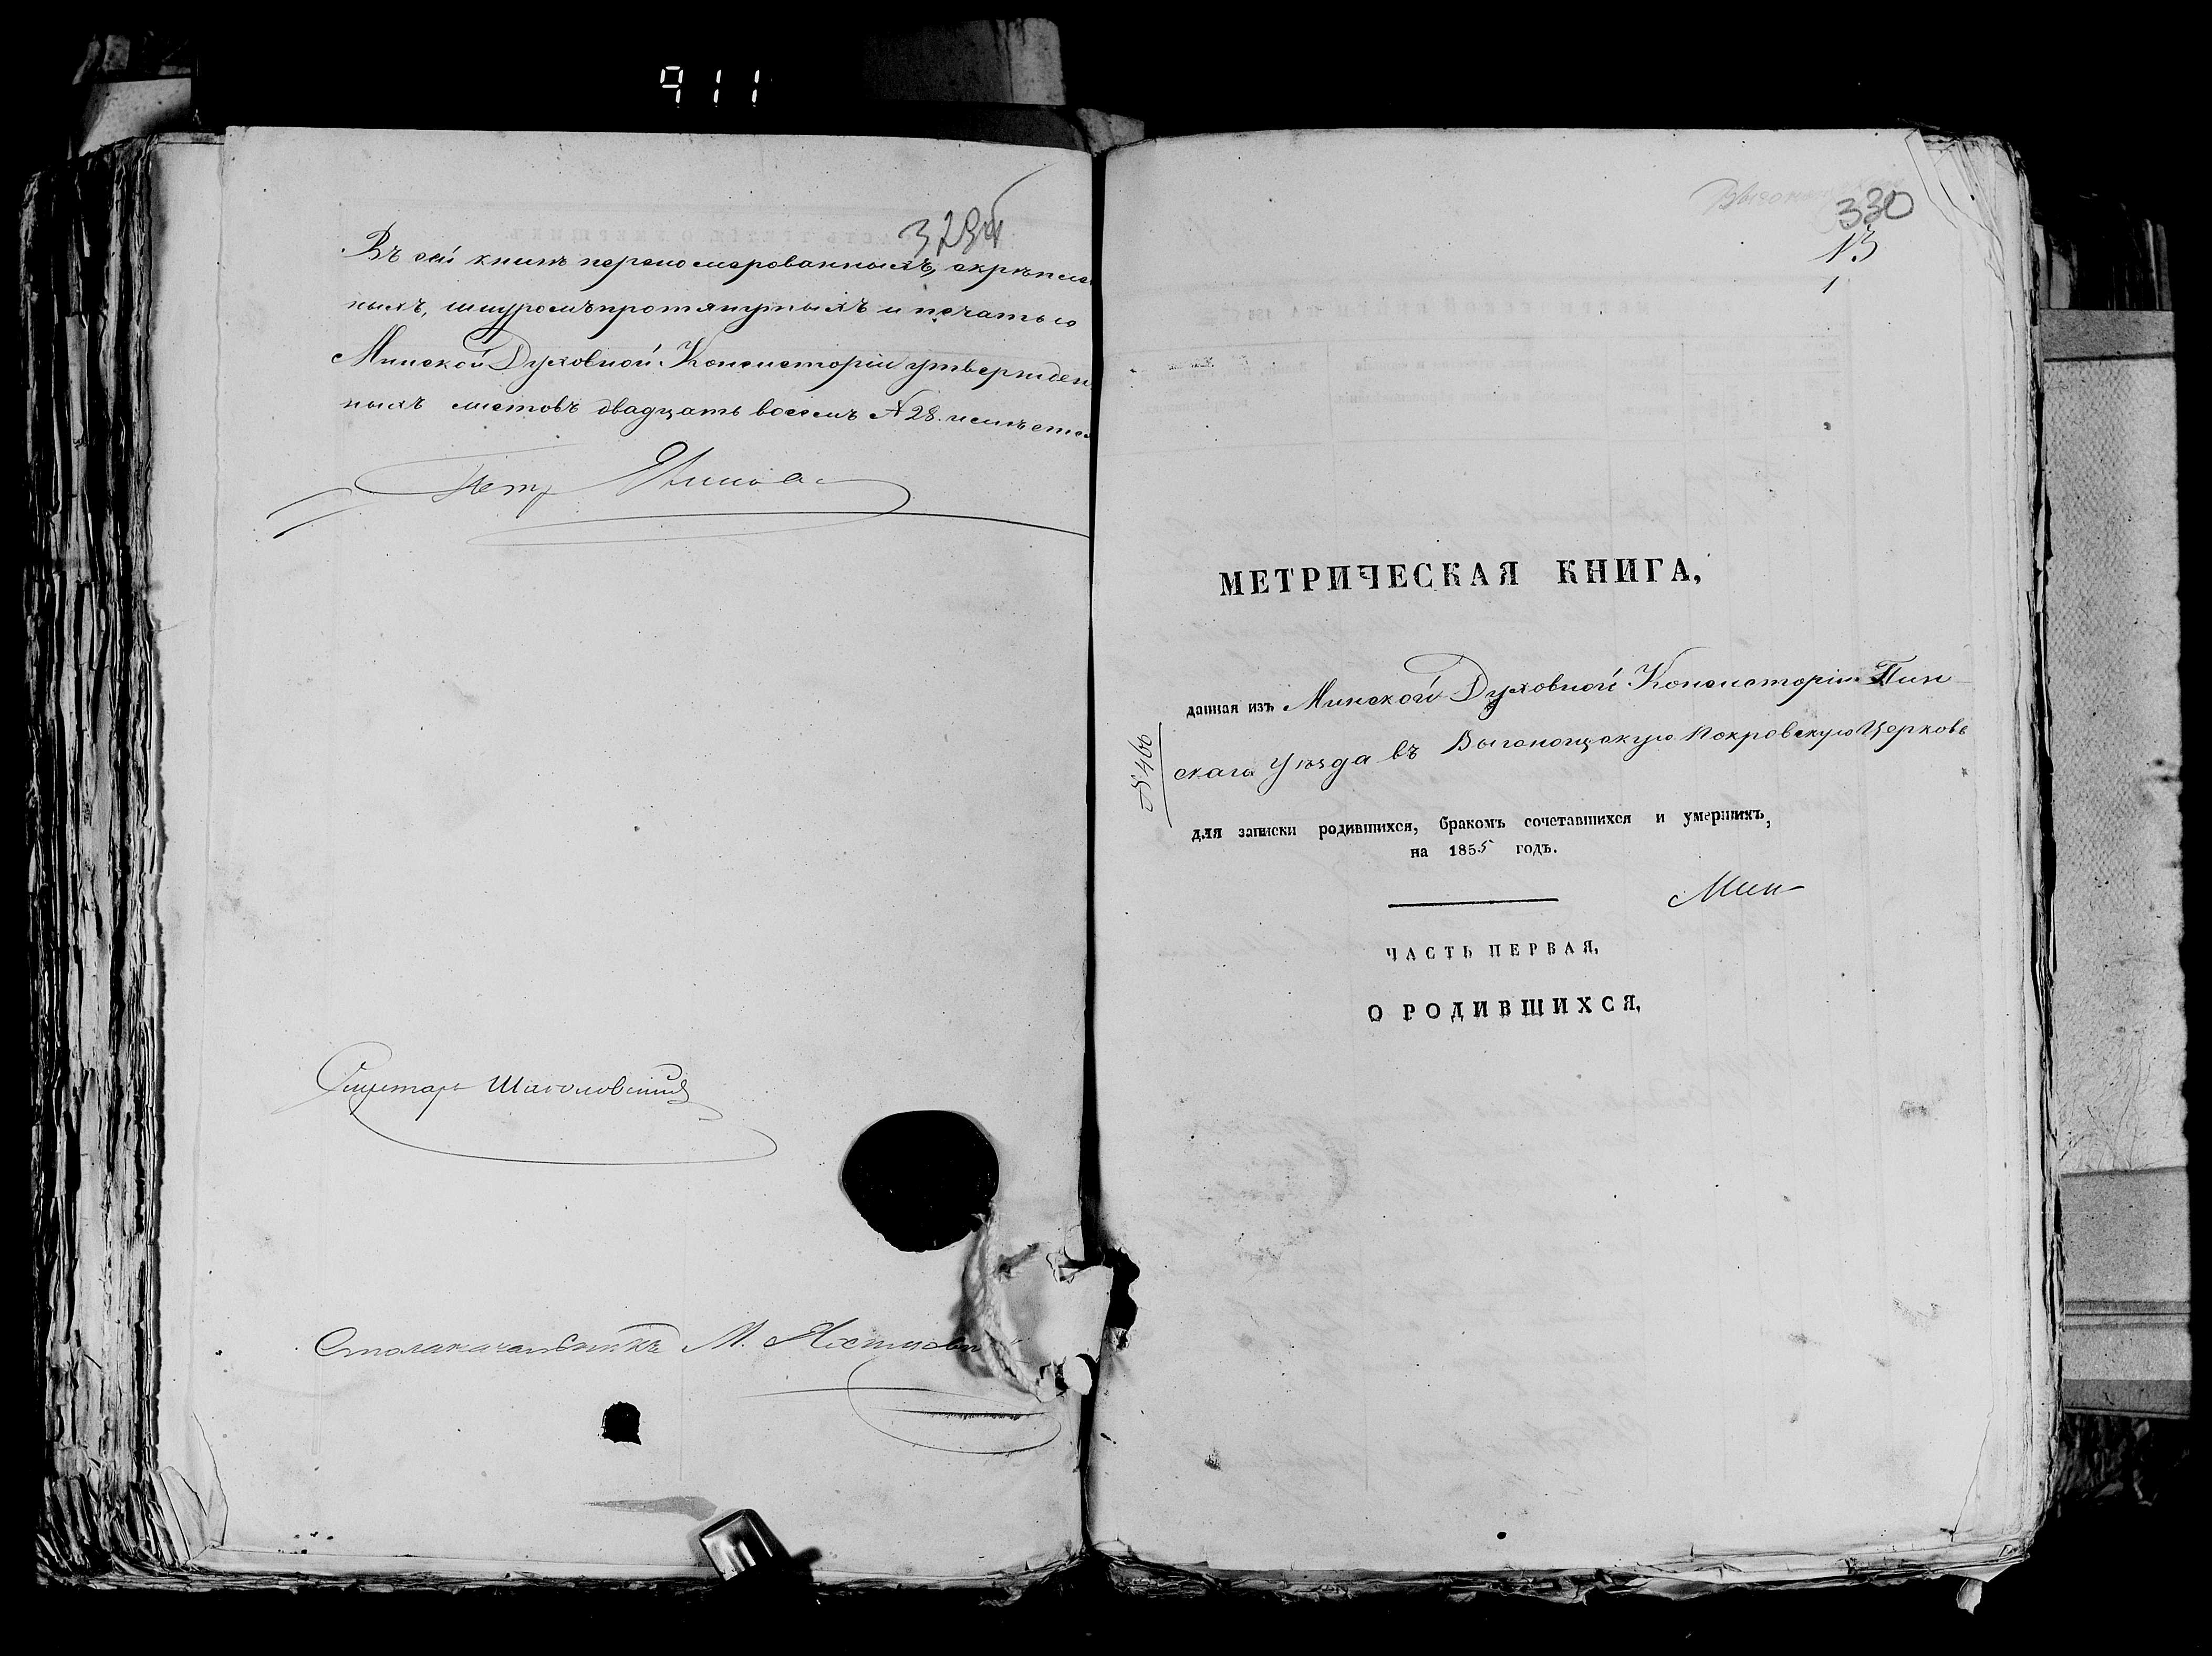 911
Въ сей книгѣ перенумерованныхъ, скрѣплен
ныхъ, шнуромъ протянутыхъ и печатью
Минской Духовной Консисторіи утвержден
ныхъ листовъ двадцать восемь № 28. имѣется
Секретарь
Столоначальникъ М.
330
13
1
МЕТРИЧЕСКАЯ КНИГА,
данная изъ Минской Духовной Консисторіи Пин
скаго Уѣзда въ Выгонощскую Покровскую Церковь
№ 466
для записки родившихся, бракомъ сочетавшихся и умершихъ,
на 1855 годъ.
Мин-
ЧАСТЬ ПЕРВАЯ,
О РОДИВШИХСЯ,